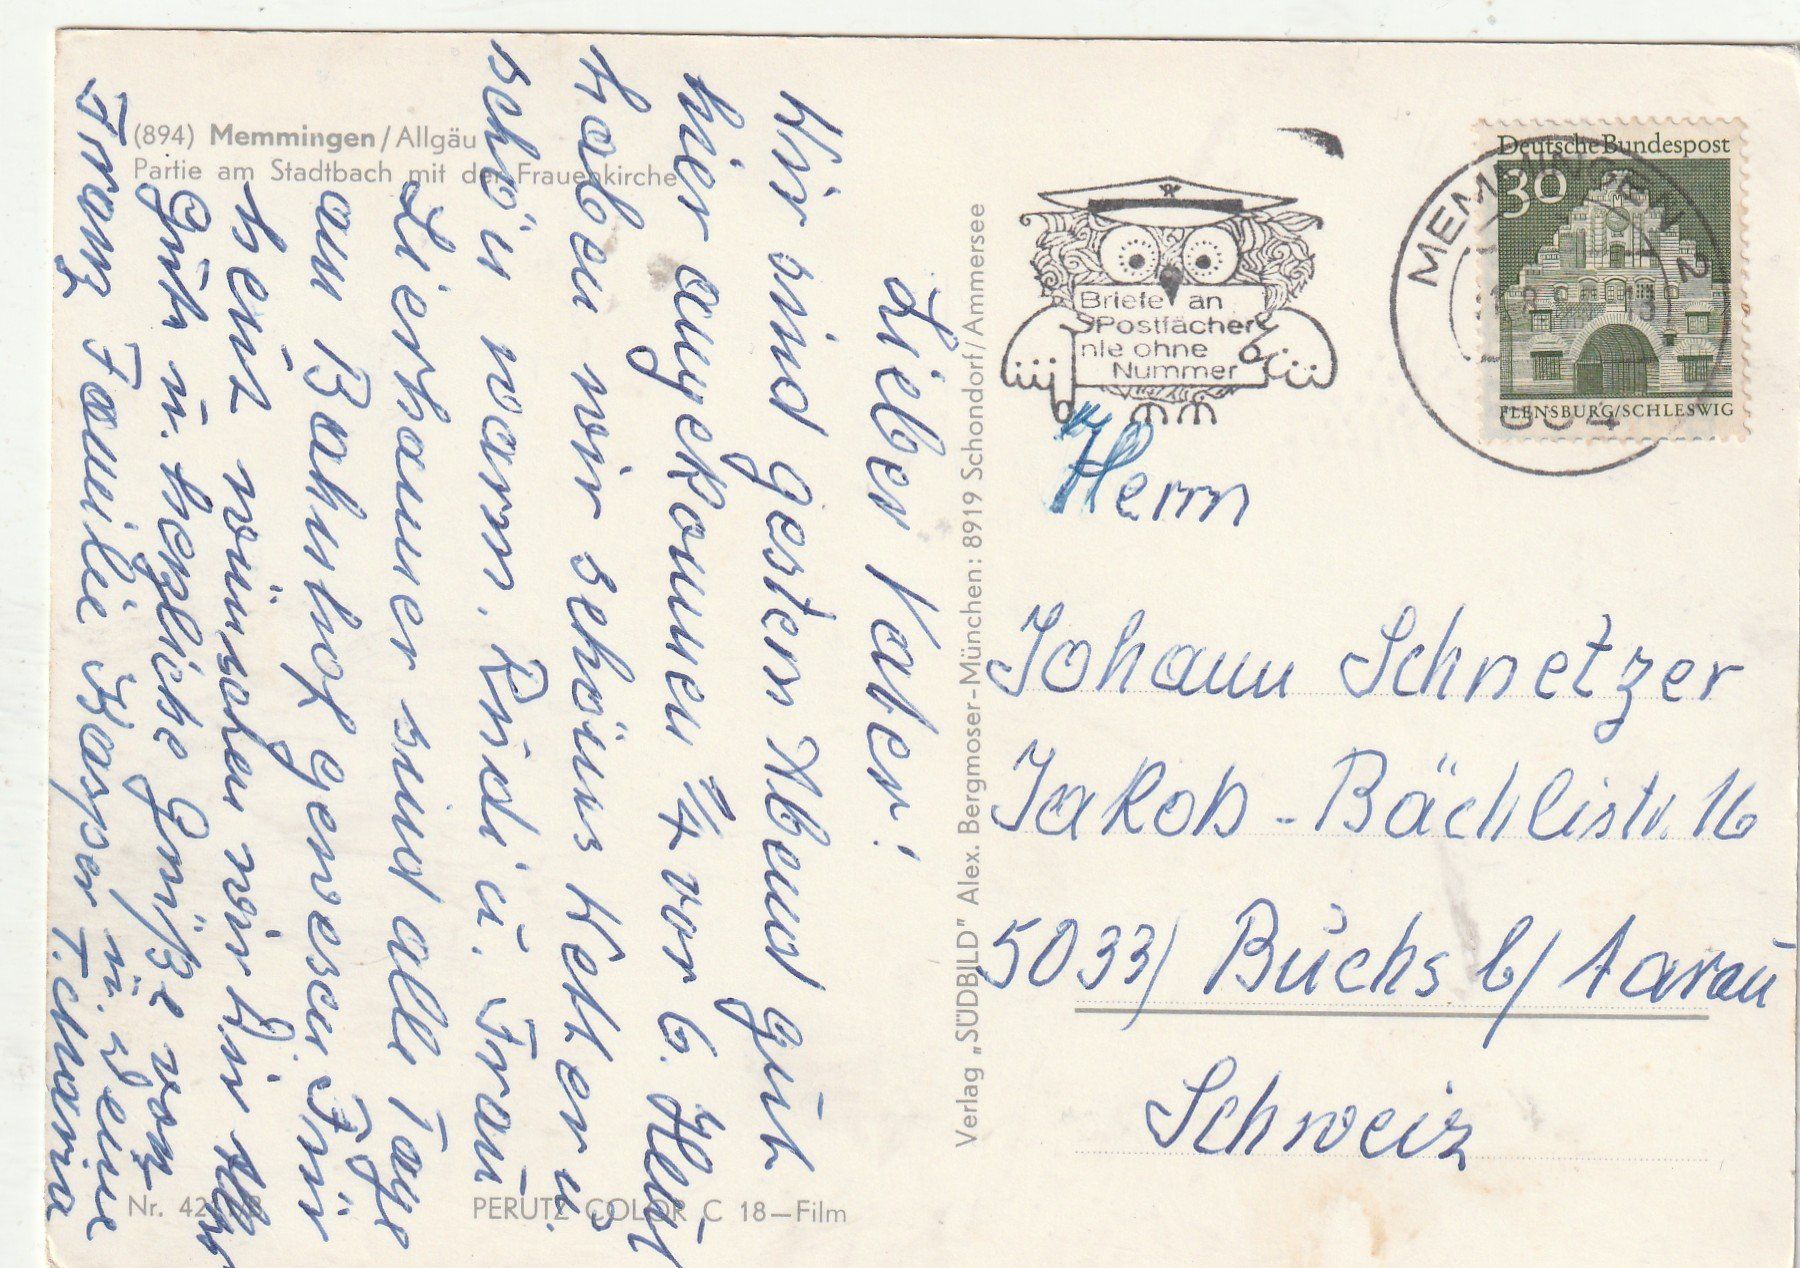 (894) Memmingen/Allgäu
Partie am Stadtbach mit der Frauenkirche
Lieber Vater!
Wir sind gestern Abend gut
hier angekommen ¼ vor 6. Heut
haben wir schöns Wetter u.
schön warm. Rudi u. Frau
Lierhamer sind alle Tage
am Bahnhof gewesen. Für
heut wünschen wir Dir alles
Gute u. herzliche Grüße von
Franz Familie Kasper u. Deine
T. Maria
Nr. 42
PERUTZ COLOR C 18–Film
Verlag „SÜDBILD" Alex. Bergmoser-München: 8919 Schondorf/Ammersee
Briefe an
Postfächer
nie ohne
Nummer
MEMMINGEN 2
894
Deutsche Bundespost
30
FLENSBURG/SCHLESWIG
Herrn
Johann Schnetzer
Jakob-Bächlistr. 16
5033/ Buchs b/ Aarau
Schweiz